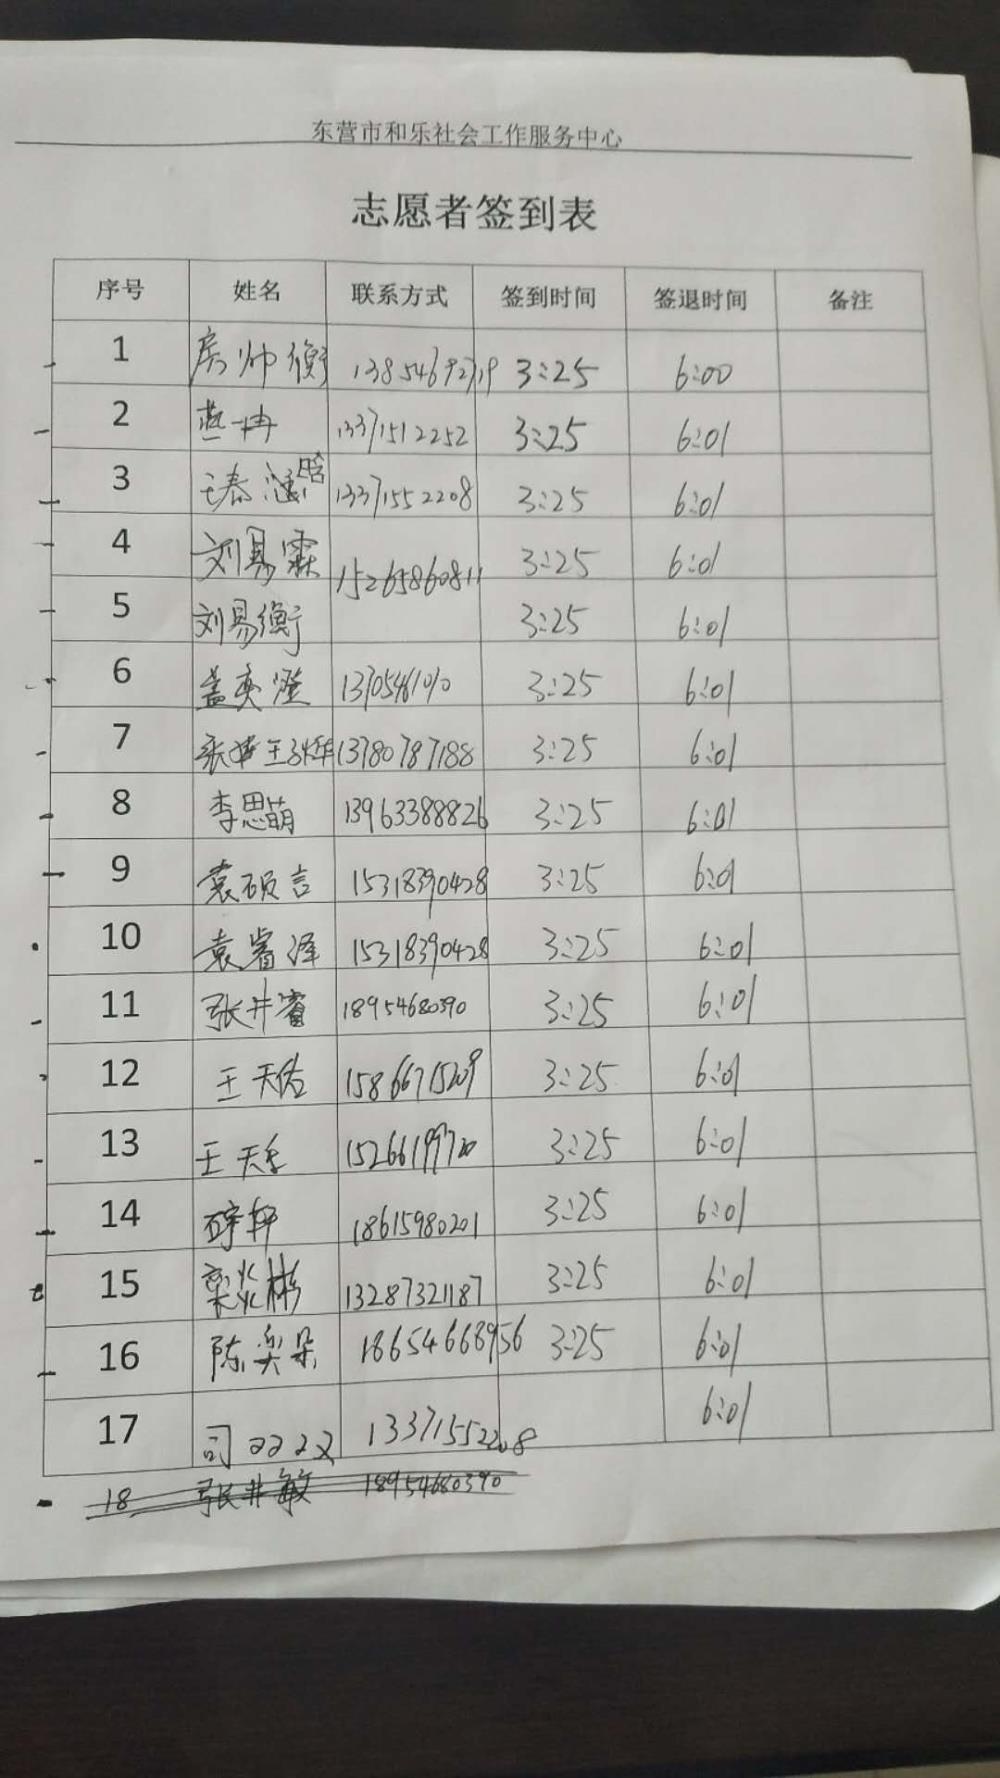 东营市和乐社会工作服务中心
志愿者签到表
序号 姓名 联系方式 签到时间 签退时间 备注
1 房帅衡 3:25 6:00
2 燕一冉 13371512252 3:25 6:01
3 13371552208 3:25 6:01
4 刘易霖 15265860811 3:25 6:01
5 刘易衡 3:25 6:01
6 盖奕澄 13705461010 3:25 6:01
7 张苹 王子烨 13780787188 3:25 6:01
8 李思萌 13963388826 3:25 6:01
9 袁硕言 15318390428 3:25 6:01
10 袁睿泽 15318390428 3:25 6:01
11 张井睿 18954680390 3:25 6:01
12 王天佑 15866715209 3:25 6:01
13 王天 3:25 6:01
14 18615980201 3:25 6:01
15 梁炎彬 13287321187 3:25 6:01
16 陈奕朵 18654668956 3:25 6:01
17 司 13371552208 6:01
18 张井敏 18954680390